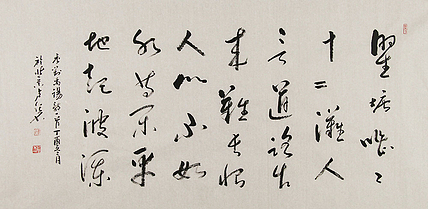 瞿塘嘈〻
十二灘人
言道路古
来難長恨
人心不如
水等閑平
地起波瀾
劉禹錫詩丁酉月